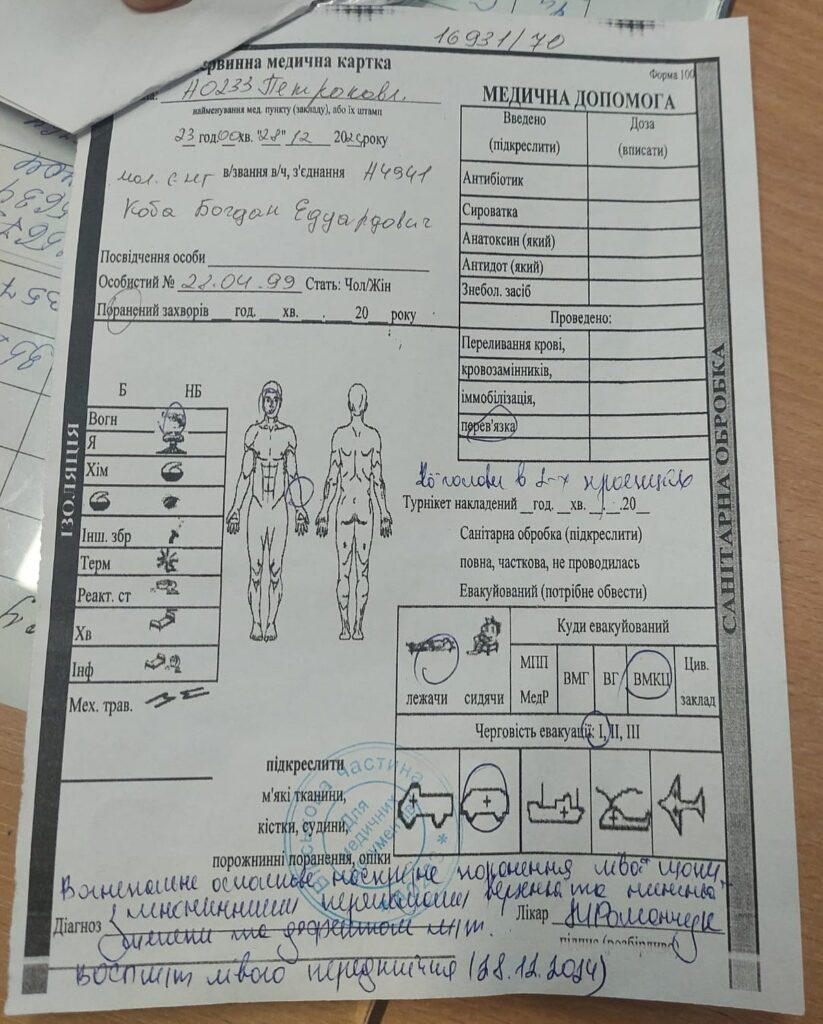 16931/70
Форма 100
рвинна медична картка
А0233
найменування мед. пункту (закладу), або їх штамп
23 год 00 хв. "28" 12 202 року
мол. с-нт в/звання в/ч, з'єднання А4941
Коба Богдан Едуардович
Посвідчення особи
Особистий № 22.04.99 Стать: Чол/Жін
Поранений захворів __ год. __ хв. __.__ 20__ року
МЕДИЧНА ДОПОМОГА
Введено (підкреслити)
Доза (вписати)
Антибіотик
Сироватка
Анатоксин (який)
Антидот (який)
Знебол. засіб
Проведено:
Переливання крові,
кровозамінників,
іммобілізація,
перев'язка
голови в 2-х
Турнікет накладений __год. __хв. __.__.20__
Санітарна обробка (підкреслити)
повна, часткова, не проводилась
Евакуйований (потрібне обвести)
Б НБ
Вогн
Я
Хім
Інш. збр
Терм
Реакт. ст
Хв
Інф
Мех. трав.
ІЗОЛЯЦІЯ
САНІТАРНА ОБРОБКА
лежачи сидячи
Куди евакуйований
МПП МедР
ВМГ
ВГ
ВМКЦ
Цив. заклад
Черговість евакуації: I, II, III
підкреслити
м'які тканини,
кістки, судини,
порожнинні поранення, опіки
Військова частина
Для медичних документів
Вогнепальне осколкове наскрізне поранення лівої щоки
переломом верхньої та нижньої
Діагноз та дефектом м/т.
Лікар
підпис (розбірливо)
ВОСП м/т лівого передпліччя (28.12.2024)